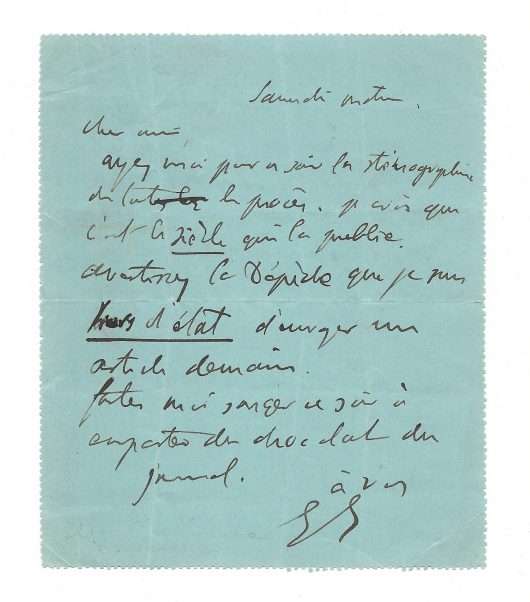 Samedi matin.
Cher ami
ayez moi pour ce soir la sténographie
du procès. je crois que
c'est le siècle qui la publie.
avertissez la Dépêche que je suis
hors d'état d'envoyer un
article demain.
faites moi songer ce soir à
emporter du chocolat du
journal.
à vous